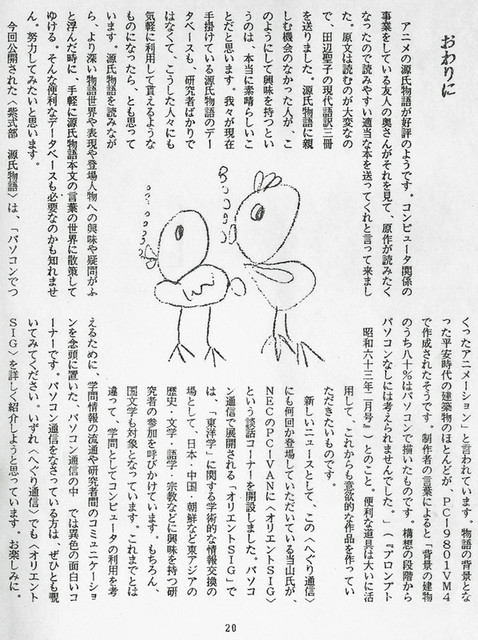 おわりに
アニメの源氏物語が好評のようです。コンピュータ関係の
事業をしている友人の奥さんがそれを見て、原作が読みたく
なったので読みやすい適当な本を送ってくれと言って来まし
た。原文は読むのが大変なの
で、田辺聖子の現代語訳三冊
を送りました。源氏物語に親
しむ機会のなかった人が、こ
のようにして興味を持つとい
うのは、本当に素晴らしいこ
とだと思います。我々が現在
手掛けている源氏物語のデー
タベースも、研究者ばかりで
はなくて、こうした人々にも
気軽に利用して貰えるような
ものになったら、とも思って
います。源氏物語を読みなが
ら、より深い物語世界や表現や登場人物への興味や疑問がふ
と浮んだ時に、手軽に源氏物語本文の言葉の世界に散策して
ゆける。そんな便利なデータベースも必要なのかも知れませ
ん。努力してみたいと思います。
今回公開された〈紫式部 源氏物語〉は、「パソコンでつ
くったアニメーション」と言われています。物語の背景とな
った平安時代の建築物のほとんどが、PC-9801VM4
で作成されたそうです。制作者の言葉によると「背景の建物
のうち八十％はパソコンで描いたものです。構想の段階から
パソコンなしには考えられませんでした。」(『アロンプト
昭和六十三年二月号』)とのこと。便利な道具は大いに活
用して、これからも意欲的な作品を作ってい
ただきたいものです。
新しいニュースとして、この〈へぐり通信〉
にも何回か登場していただいている当山氏が、
NECのPC-VANに〈オリエントSIG〉
という談話コーナーを開設しました。パソコ
ン通信で展開される「オリエントSIG」で
は、「東洋学」に関する学術的な情報交換の
場として、日本・中国・朝鮮など東アジアの
歴史・文学・語学・宗教などに興味を持つ研
究者の参加を呼びかけています もちろん、
国文学も対象となっています。これまでとは
違って、学問としてコンピュータの利用を考
えるために、学問情報の流通や研究者間のコミュニケーショ
ンを念頭に置いた、パソコン通信の中 では異色の面白いコ
ーナーです。パソコン通信をなさっている方は、ぜひとも覗
いてみてください。いずれ〈へぐり通信〉でも〈オリエント
SIG〉を詳しく紹介しようと思っています。お楽しみに。
20